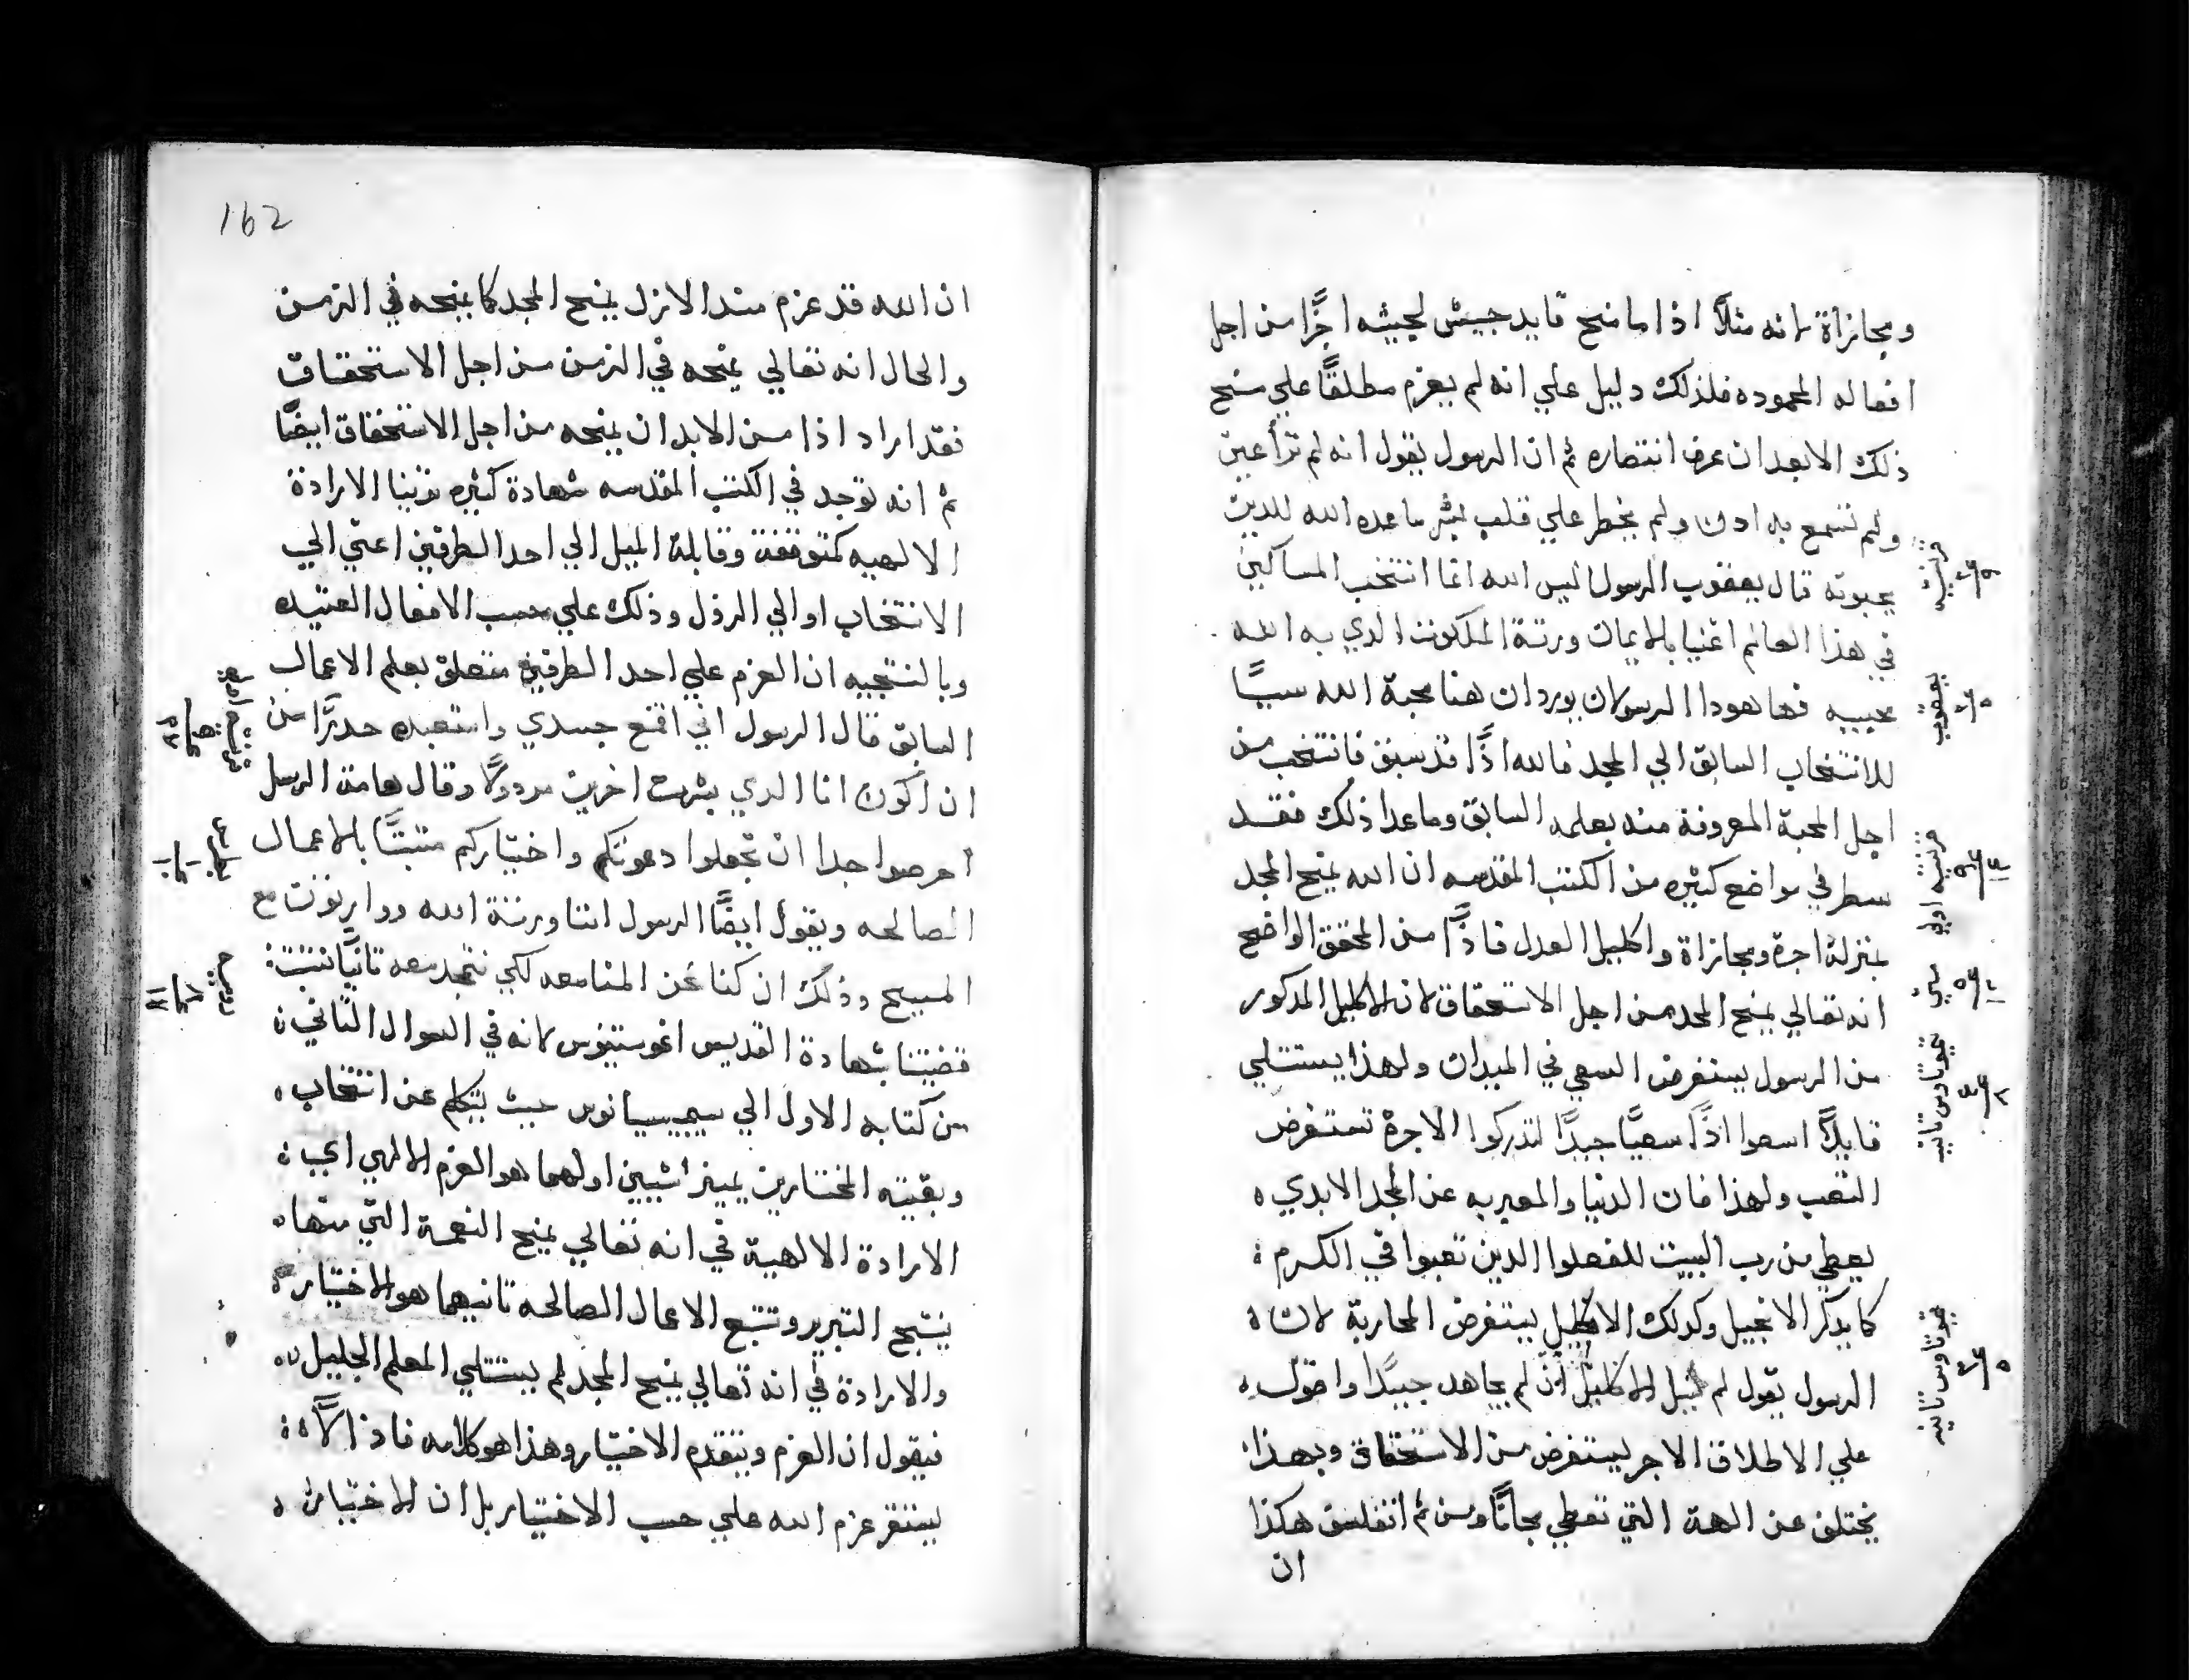 ومجازاة لانه مثلاً اذا ما منح قايد جيش لجيشه اجرًا من اجل
افعاله المحموده فلذلك دليل علي انه لم يعزم مطلقًا علي منح
ذلك الا بعد ان عرف انتصاره ثم ان الرسول يقول انه لم ترأ عين
ولم تسمع به ادن ولم يخطر علي قلب بشر ما عده الله للدين
يحبونه قال يعقوب الرسول اليس الله انما انتخب المساكين
في هذا العالم اغنيا بالايمان ورثة الملكوت الدي به الله
محبيه فها هودا الرسولان يوردان هنا محبة الله سببًا
للانتخاب السابق الي المجد فالله اذًا قد سبق فانتخب من
اجل المحبة المعروفة منه بعلمه السابق وما عدا ذلك فقد
سطر في مواضع كثيره من الكتب المقدسه ان الله يمنح المجد
بمنزلة اجرة ومجازاة واكليل العدل فاذًا من المحقق الواضح
انه تعالي يمنح المجد من اجل الاستحقاق لان الاكليل المدكور
من الرسول يستفرض السعي في الميدان ولهذا يستتلي
قايلاً اسعوا اذًا سعيًا جيدًا لتدركوا الاجرة تستفرض
التعب ولهذا فان الدنيا والمعبر به عن المجد الابدي
يعطي من رب البيت للفعلوا الدين تعبوا في الكرم
كما يدكر الانجيل وكدلك الاكليل يستفرض المحاربة لان
الرسول يقول لم ينل الاكليل ان لم يجاهد جيدًا واقول
علي الاطلاق الاجر يستفرض من الاستحقاق وبهذا
يختلف عن الهبة التي تعطي مجانًا ومن ثم اتفلسف هكذا
ان
قرنتيه
٢
٩
يعقوب
٢
٥
قرنتيه اولي
٩
٢٤
متي
٥
١٢
تيموتاوس تانيه
٤
٨
تيموتاوس تانيه
٢
٥
162
ان الله قد عزم مند الازل يمنح المجد كما يمنحه في الزمن
والحال انه تعالي يمنحه في الزمن من اجل الاستحقاق
فقد اراد اذا من الابد ان يمنحه من اجل الاستحقاق ايضًا
ثم انه توجد في الكتب المقدسه شهادة كثيره ترينا الارادة
الالهيه كمتوقفة وقابلة الميل الي احد الطرفين اعني الي
الانتخاب او الي الرذل وذلك علي حسب الافعال العتيده
وبالنتيجيه ان العزم علي احد الطرفين متعلق بعلم الاعمال
السابق قال الرسول اني اقمع جسدي واستعبده حدرًا من
ان اكون انا الدي بشرت اخرين مردولاً وقال هامة الرسل
احرصوا جدا ان تجعلوا دعوتكم واختياركم متبتًا بالاعمال
الصالحه ويقول ايضًا الرسول اننا ورثة الله ووارتون مع
المسيح وذلك ان كنا نحن المنا معه لكي نتمجد معه تانيًا تثبت
قضيتنا بشهادة القديس اغوستينوس لانه في السوال الثاني
من كتابه الاول الي سيمبيسيانوس حيث يتكلم عن انتخاب
وبقيته المختارين يميز شيين اولهما هو العزم الالهي اي
الارادة الالهية في انه تعالي يمنح النعمة التي منها
ينتج التبرير وتتبع الاعمال الصالحه تانيهما هو الاختيار
والارادة في انه تعالي يمنح المجد لم يستتلي المعلم الجليل
فيقول ان العزم ويتقدم الاختيار وهذا هو كلامه فاذًا لا
يستقر عزم الله علي حسب الاختيار بل ان الاختيار
قرنتيه اولي
٩
٢٧
بطرس
١
١٠
روميه
٨
١٧